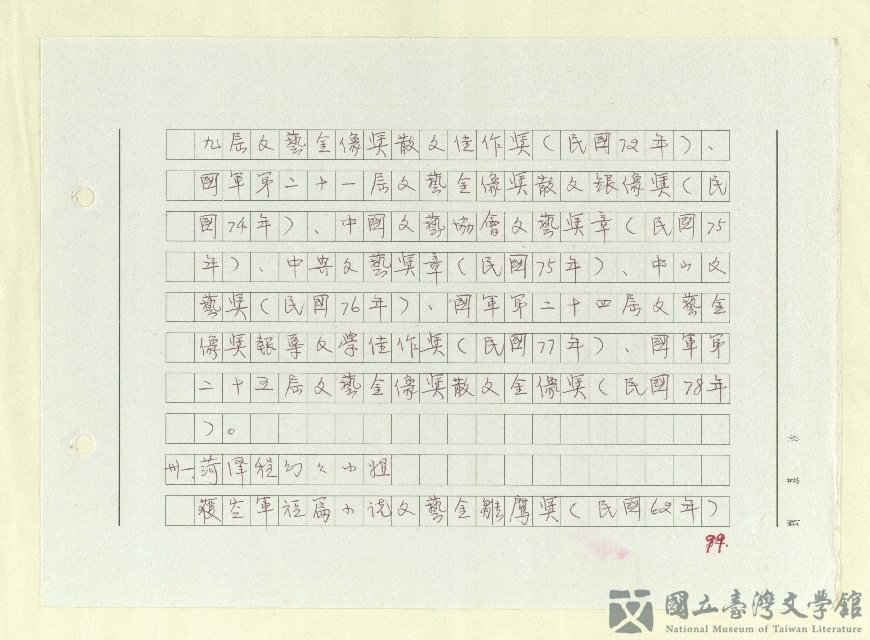 九屆文藝金像獎散文佳作獎(民國72年)、
國軍第二十一屆文藝金像獎散文銀像獎(民
國74年)、中國文藝協會文藝獎章(民國75
年)、中興文藝獎章(民國75年)、中山文
藝獎(民國76年)、國軍第二十四屆文藝金
像獎報導文學佳作獎(民國77年)、國軍第
二十五屆文藝金像獎散文金像獎(民國78年
)。
卅一、菏澤程幻幻小姐
獲空軍短篇小說文藝金雛鷹獎(民國62年)
99.
國立臺灣文學館
National Museum of Taiwan Literature